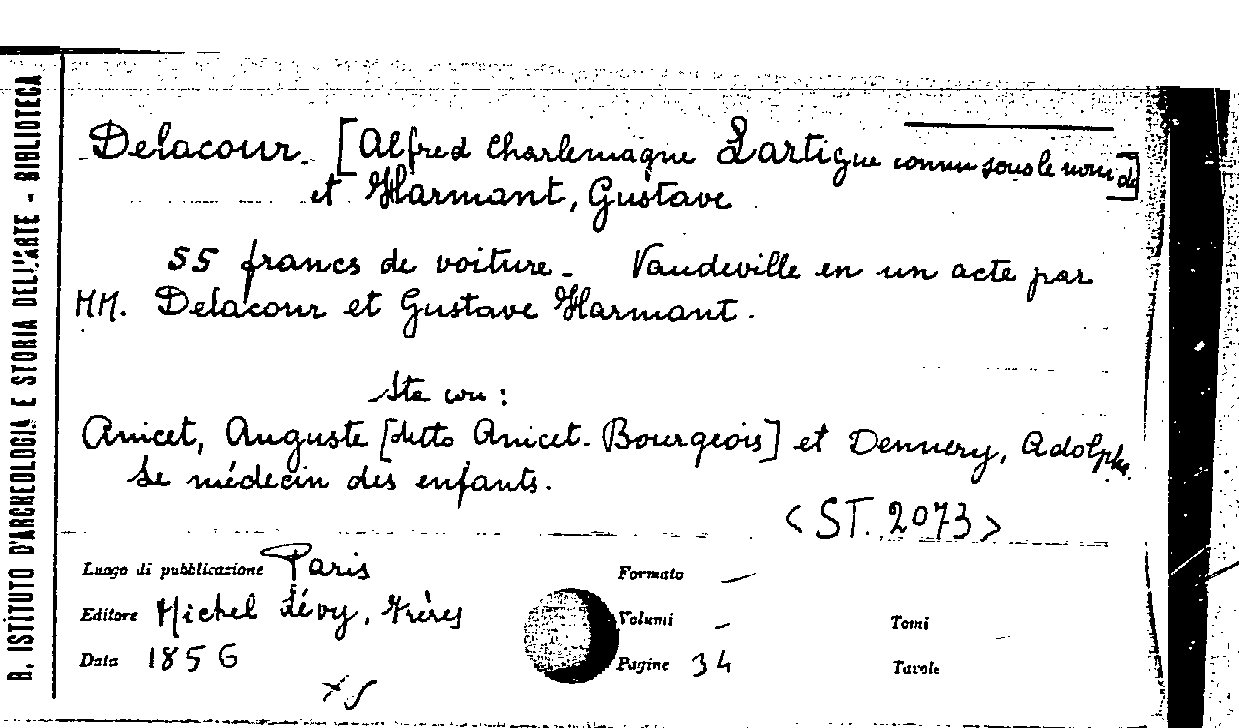 R. ISTITUTO D'ARCHEOLOGIA E STORIA DELL'ARTE - BIBLIOTECA
Delacour. [Alfred Charlemagne Lartigue connu sous le nom de]
et Harmant, Gustave
55 francs de voiture. Vaudeville en un acte par
MM. Delacour et Gustave Harmant.
Sta con:
Anicet, Auguste [detto Anicet-Bourgeois] et Dennery, Adolphe
Le médecin des enfants.
<ST. 2073>
Luogo di pubblicazione Paris Formato —
Editore Michel Lévy, Frères Volumi — Tomi
Data 1856 Pagine 34 Tavole